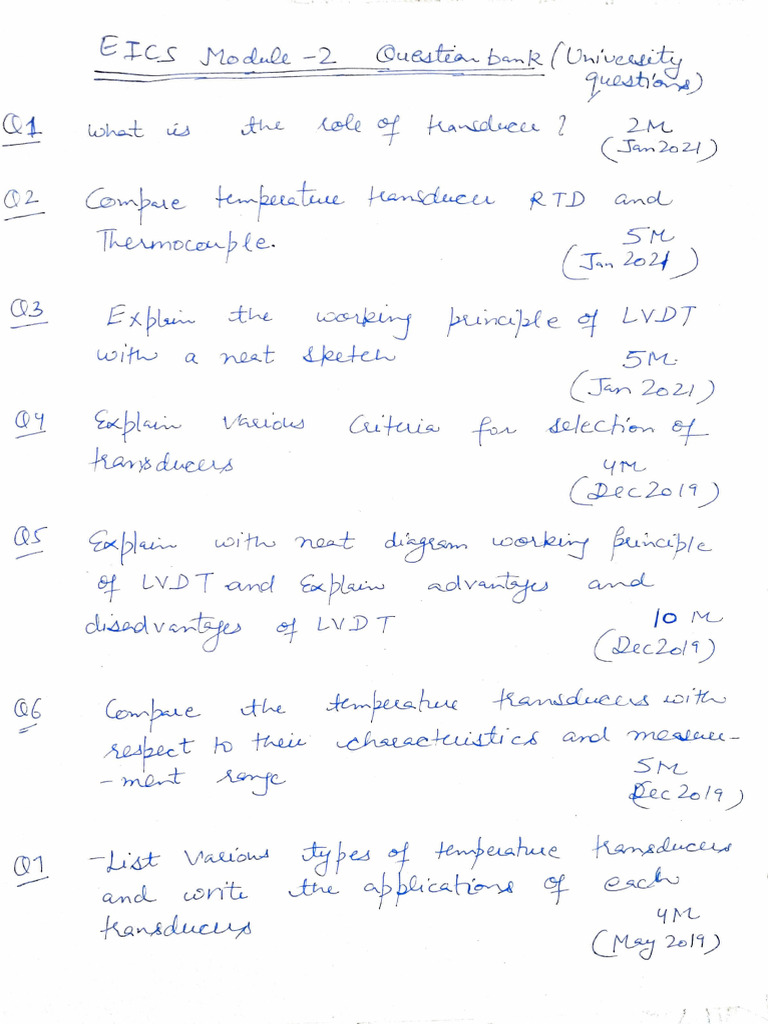 EICS Module -2 Question bank (University
questions)
Q1 What is the role of transducer ? 2M
(Jan 2021)
Q2 Compare temperature transducer RTD and
Thermocouple. 5M
(Jan 2021)
Q3 Explain the working principle of LVDT
with a neat sketch 5M.
(Jan 2021)
Q4 Explain various criteria for selection of
transducers 4M
(Dec 2019)
Q5 Explain with neat diagram working principle
of LVDT and Explain advantages and
disadvantages of LVDT 10 M
(Dec 2019)
Q6 Compare the temperature transducers with
respect to their characteristics and measure-
-ment range 5M
(Dec 2019)
Q7 -List various types of temperature transducers
and write the applications of each
transducers 4M
(May 2019)